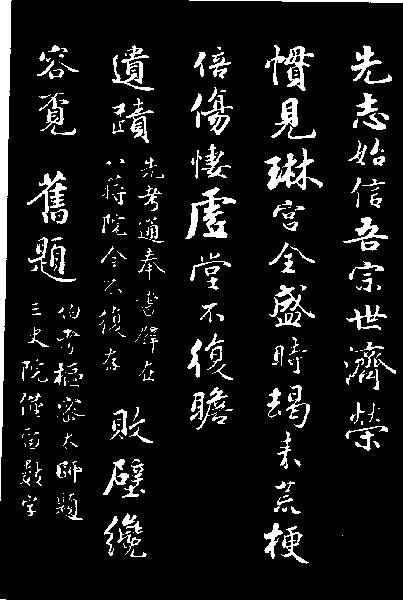 先志始信吾宗世濟榮
慣見琳宮全盛時朅來荒梗
倍傷悽虛堂不復瞻
遺蹟
先考通奉書壁在
八蔣院今不復存
敗壁纔
容覓舊題
伯考樞密太師題
三史院僅留數字